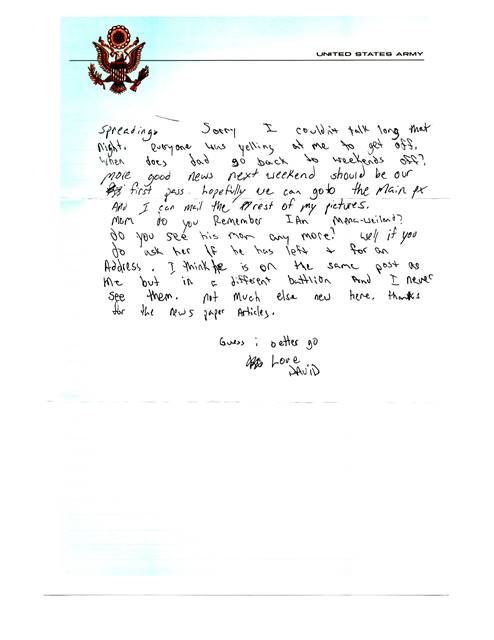 UNITED STATES ARMY
spreading. Sorry I couldn't talk long that
night. everyone was yelling at me to get off.
when does dad go back to weekends off?
more good news next weekend should be our
first pass. hopefully we can goto the Main px
And I can mail the rest of my pictures.
Mom do you Remember IAn
Do you see his mom any more? well if you
do ask her If he has left + for an
Address. I think he is on the same post as
me but in a different battlion And I never
see them. not much else new here. thanks
for the news paper Articles.
Guess i better go
Love
DAViD